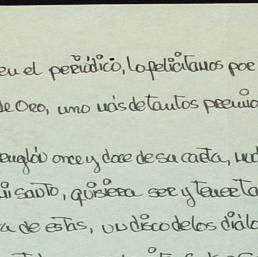 en el periódico, lo felicitamos por
de Oro, uno más de tantos premio
renglón once y doce de su carta, no
ii santo, quisiera ser y tener ta
a de estas, un disco de los diálo